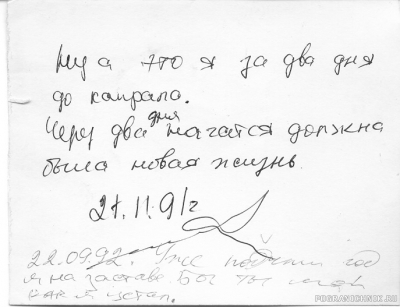 Ну а это я за два дня
до капрала.
Через два дня начатся должна
была новая жизнь.
21.11.91г
22.09.92. Уже почти год
я на заставе. Бог ты мой
как я устал.
POGRANICHNIK.RU